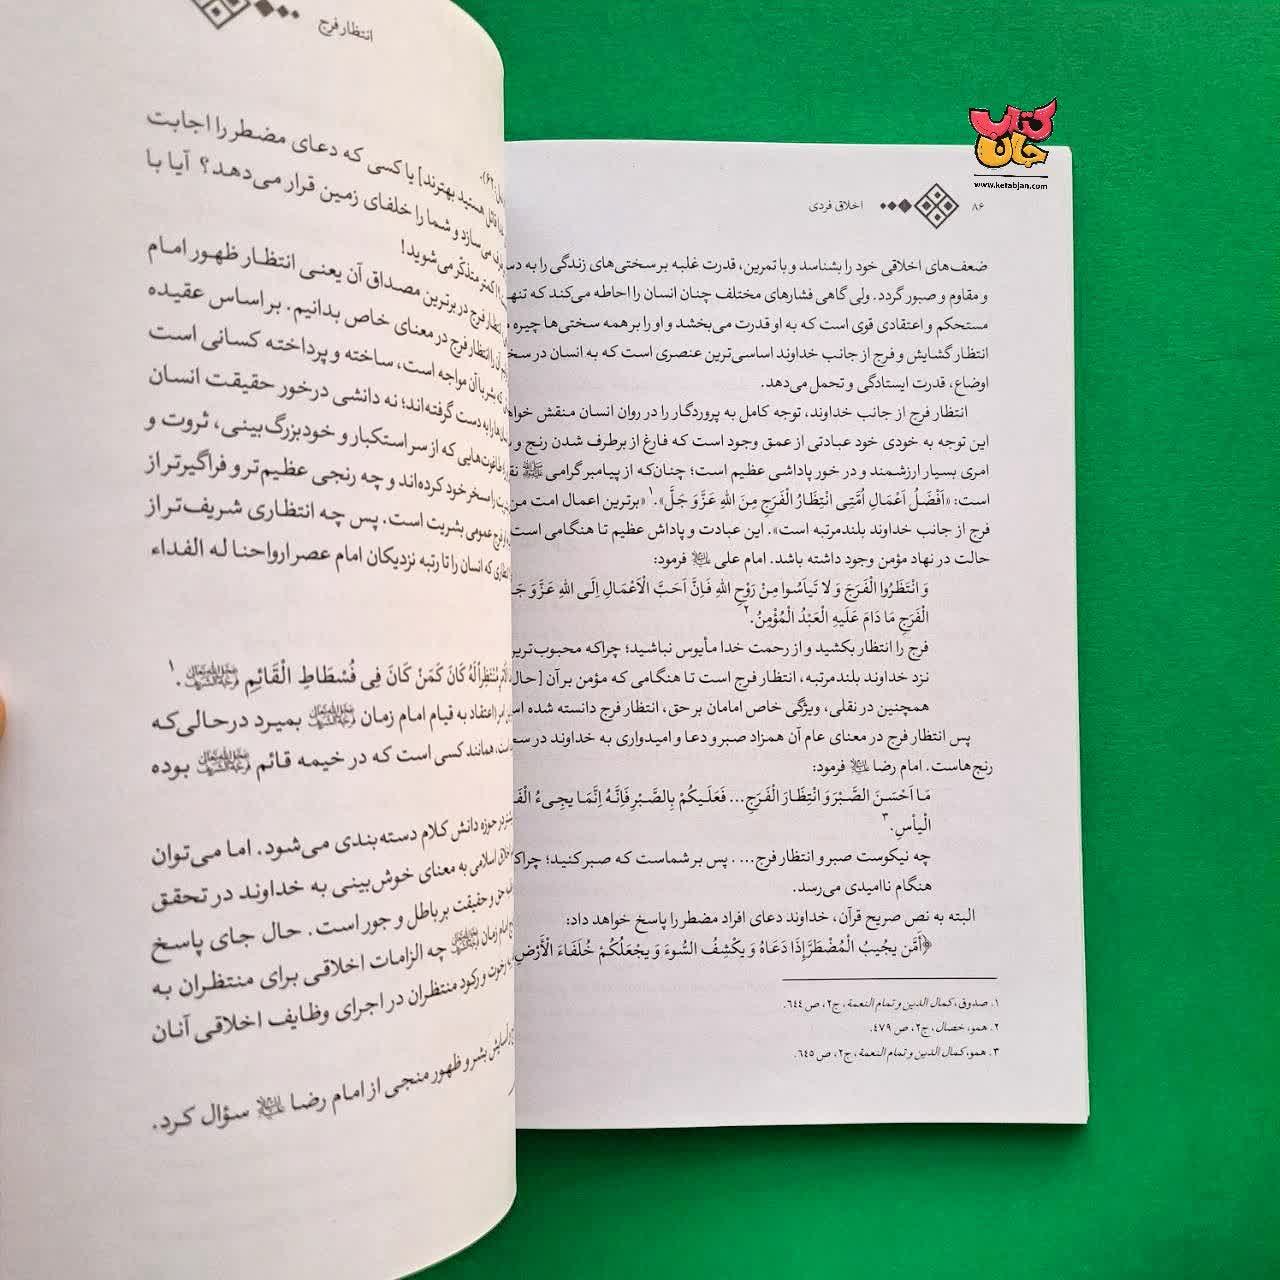 کتاب جان
www.ketabjan.com
۸۶ اخلاق فردی
ضعف‌های اخلاقی خود را بشناسد و با تمرین، قدرت غلبه بر سختی‌های زندگی را به
و مقاوم و صبور گردد. ولی گاهی فشارهای مختلف چنان انسان را احاطه می‌کند که
مستحکم و اعتقادی قوی است که به او قدرت می‌بخشد و او را بر همه سختی‌ها چیره
انتظار گشایش و فرج از جانب خداوند اساسی‌ترین عنصری است که به انسان در
اوضاع، قدرت ایستادگی و تحمل می‌دهد.
انتظار فرج از جانب خداوند، توجه کامل به پروردگار را در روان انسان منقش
این توجه به خودی خود عبادتی از عمق وجود است که فارغ از برطرف شدن رنج و
امری بسیار ارزشمند و در خور پاداشی عظیم است؛ چنان‌که از پیامبر گرامی ﷺ
است: «اَفْضَلُ اَعْمَالِ اُمَّتِی انْتِظَارُ الْفَرَجِ مِنَ اللهِ عَزَّ وَ جَلَّ».۱ «برترین اعمال امت من
فرج از جانب خداوند بلندمرتبه است». این عبادت و پاداش عظیم تا هنگامی است
حالت در نهاد مؤمن وجود داشته باشد. امام علی علیه‌السلام فرمود:
وَ انْتَظَرُوا الْفَرَجَ وَ لَا تَیأسُوا مِنْ رَوْحِ اللهِ فَإِنَّ اَحَبَّ الْاَعْمَالِ اِلَی اللهِ عَزَّ وَ
الْفَرَجِ مَا دَامَ عَلَیهِ الْعَبْدُ الْمُؤْمِنُ.۲
فرج را انتظار بکشید و از رحمت خدا مأیوس نباشید؛ چراکه محبوب‌ترین
نزد خداوند بلندمرتبه، انتظار فرج است تا هنگامی که مؤمن بر آن [حال
همچنین در نقلی، ویژگی خاص امامان بر حق، انتظار فرج دانسته شده
پس انتظار فرج در معنای عام آن همزاد صبر و دعا و امیدواری به خداوند در
رنج‌هاست. امام رضا علیه‌السلام فرمود:
مَا اَحْسَنَ الصَّبْرَ وَ انْتِظَارَ الْفَرَجِ... فَعَلَیکُمْ بِالصَّبْرِ فَاِنَّهُ اِنَّمَا یجِیءُ
الْیأسِ.۳
چه نیکوست صبر و انتظار فرج... . پس بر شماست که صبر کنید؛
هنگام ناامیدی می‌رسد.
البته به نص صریح قرآن، خداوند دعای افراد مضطر را پاسخ خواهد داد:
﴿أَمَّن یجِیبُ الْمُضْطَرَّ إِذَا دَعَاهُ وَ یکْشِفُ السُّوءَ وَ یجْعَلُکُمْ خُلَفَاءَ الْأَرْضِ
۱. صدوق، کمال الدین و تمام النعمة، ج۲، ص ٦٤٤.
۲. همو، خصال، ج۲، ص ٤٧٩.
۳. همو، کمال الدین و تمام النعمة، ج۲، ص ٦٤٥.
انتظار فرج
هستید بهترند] یا کسی که دعای مضطر را اجابت
می‌سازد و شما را خلفای زمین قرار می‌دهد؟ آیا با
کمتر متذکر می‌شوید!
انتظار فرج در برترین مصداق آن یعنی انتظار ظهور امام
آن را انتظار فرج در معنای خاص بدانیم. بر اساس عقیده
که بشر با آن مواجه است، ساخته و پرداخته کسانی است
را به دست گرفته‌اند؛ نه دانشی درخور حقیقت انسان
طاغوت‌هایی که از سر استکبار و خودبزرگ‌بینی، ثروت و
را مسخر خود کرده‌اند و چه رنجی عظیم‌تر و فراگیرتر از
فرج عمومی بشریت است. پس چه انتظاری شریف‌تر از
انتظاری که انسان را تا رتبه نزدیکان امام عصر ارواحنا له الفداء
مُنْتَظِراً لَهُ کَانَ کَمَنْ کَانَ فِی فُسْطَاطِ الْقَائِمِ.۱
امر (اعتقاد به قیام امام زمان بمیرد درحالی‌که
است، همانند کسی است که در خیمه قائم بوده
در حوزه دانش کلام دسته‌بندی می‌شود. اما می‌توان
اخلاق اسلامی به معنای خوش‌بینی به خداوند در تحقق
حق و حقیقت بر باطل و جور است. حال جای پاسخ
امام زمان چه الزامات اخلاقی برای منتظران به
رخوت و رکود منتظران در اجرای وظایف اخلاقی آنان
آسایش بشر و ظهور منجی از امام رضا علیه‌السلام سؤال کرد.